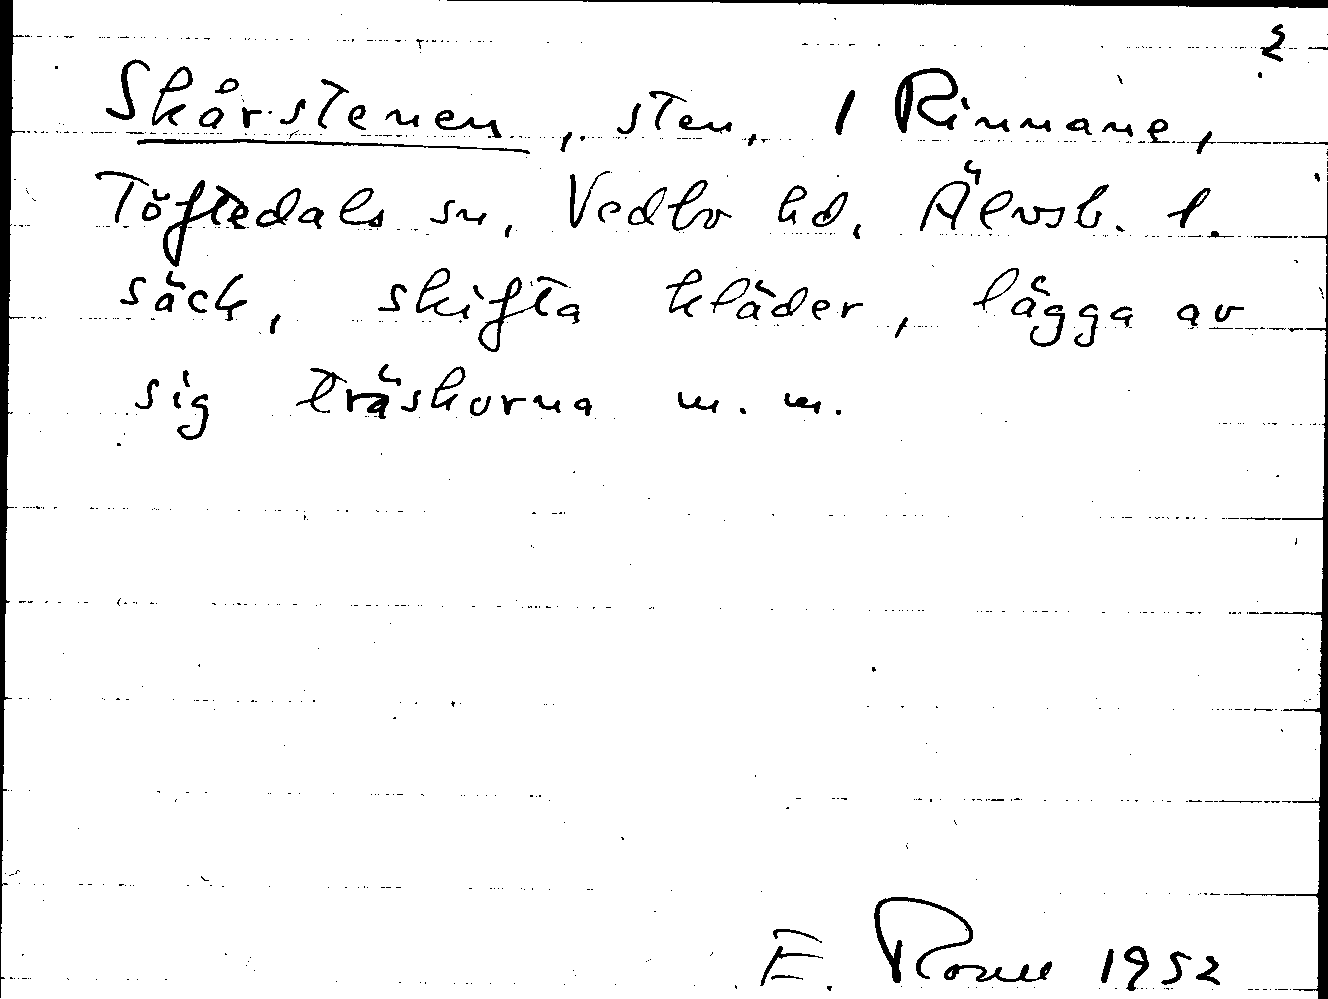 2
Skår-stenen, sten, 1 Rinnane,
Töftedals sn, Vedbo hd, Älvsb. l.
säck, skifta kläder, lägga av
sig träskorna m. m.
E. 1952